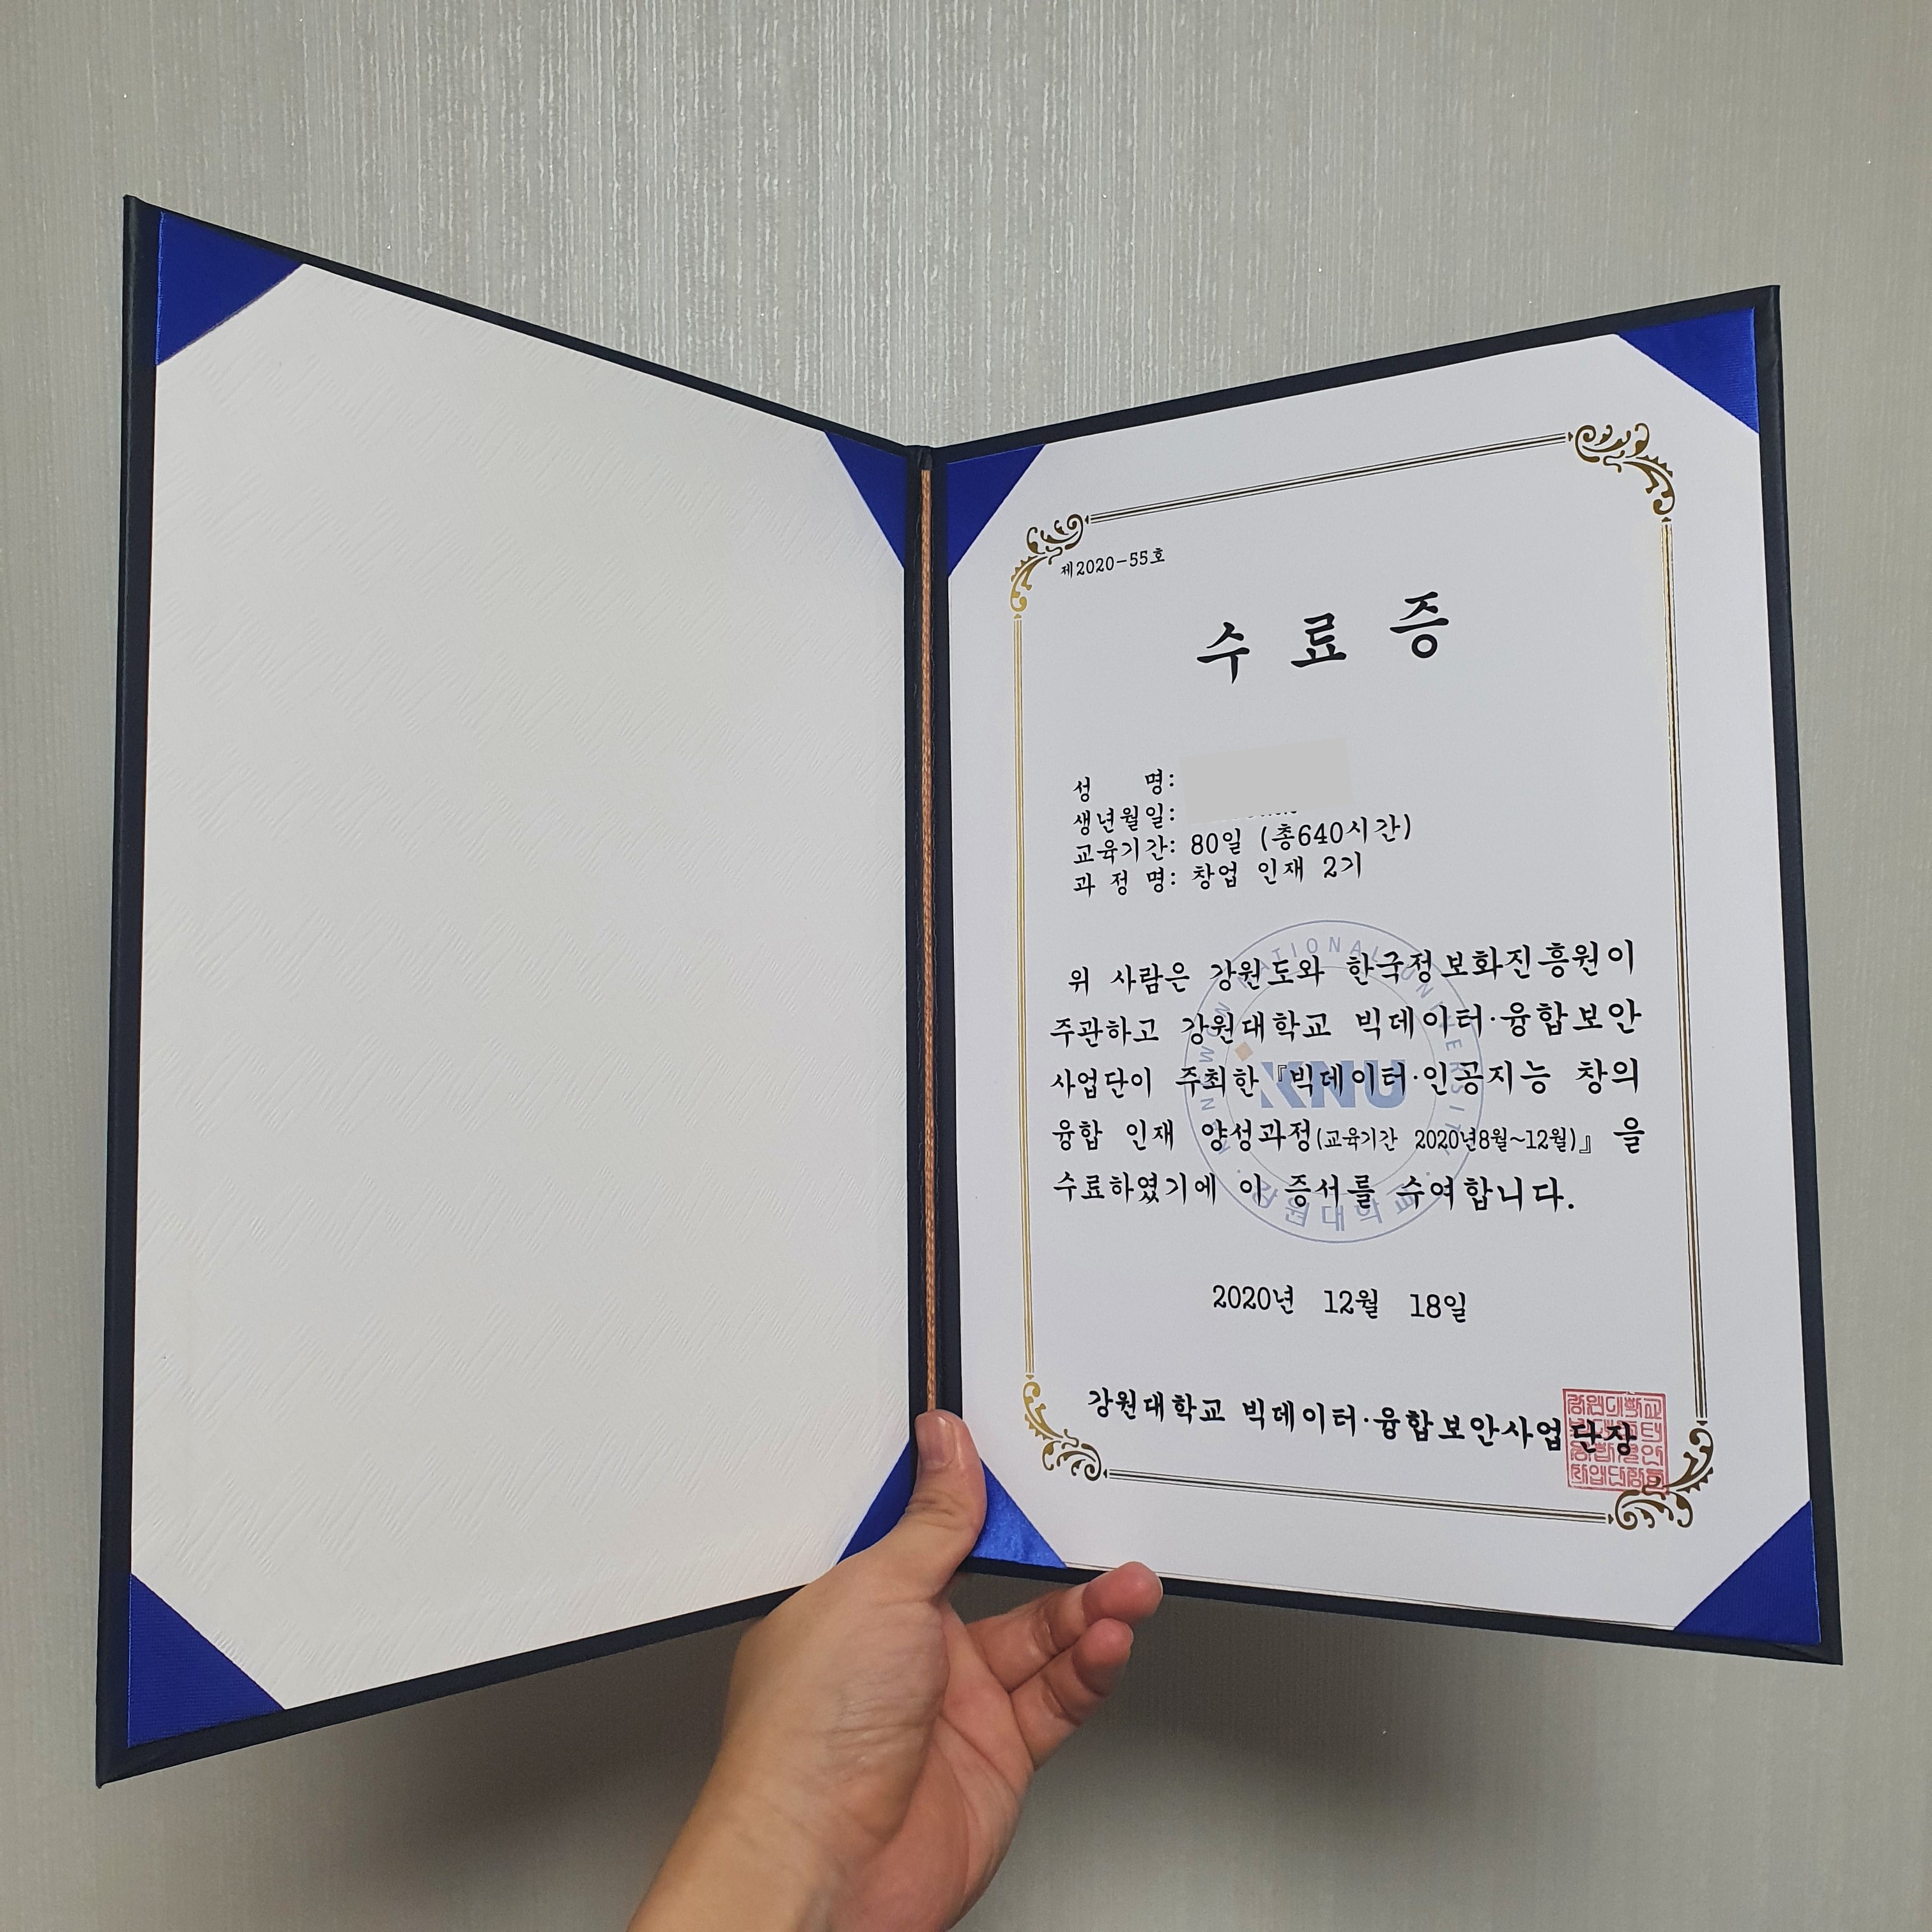 제2020-55호
수 료 증
성 명:
생년월일:
교육기간: 80일 (총640시간)
과 정 명: 창업 인재 2기
위 사람은 강원도와 한국정보화진흥원이
주관하고 강원대학교 빅데이터·융합보안
사업단이 주최한 『빅데이터·인공지능 창의
융합 인재 양성과정(교육기간 2020년8월~12월)』 을
수료하였기에 이 증서를 수여합니다.
KANGWON NATIONAL UNIVERSITY
KNU
강원대학교
2020년 12월 18일
강원대학교 빅데이터·융합보안사업단장